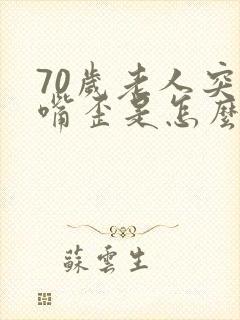 70歲老人突
嘴歪是怎麼
蘇雲生